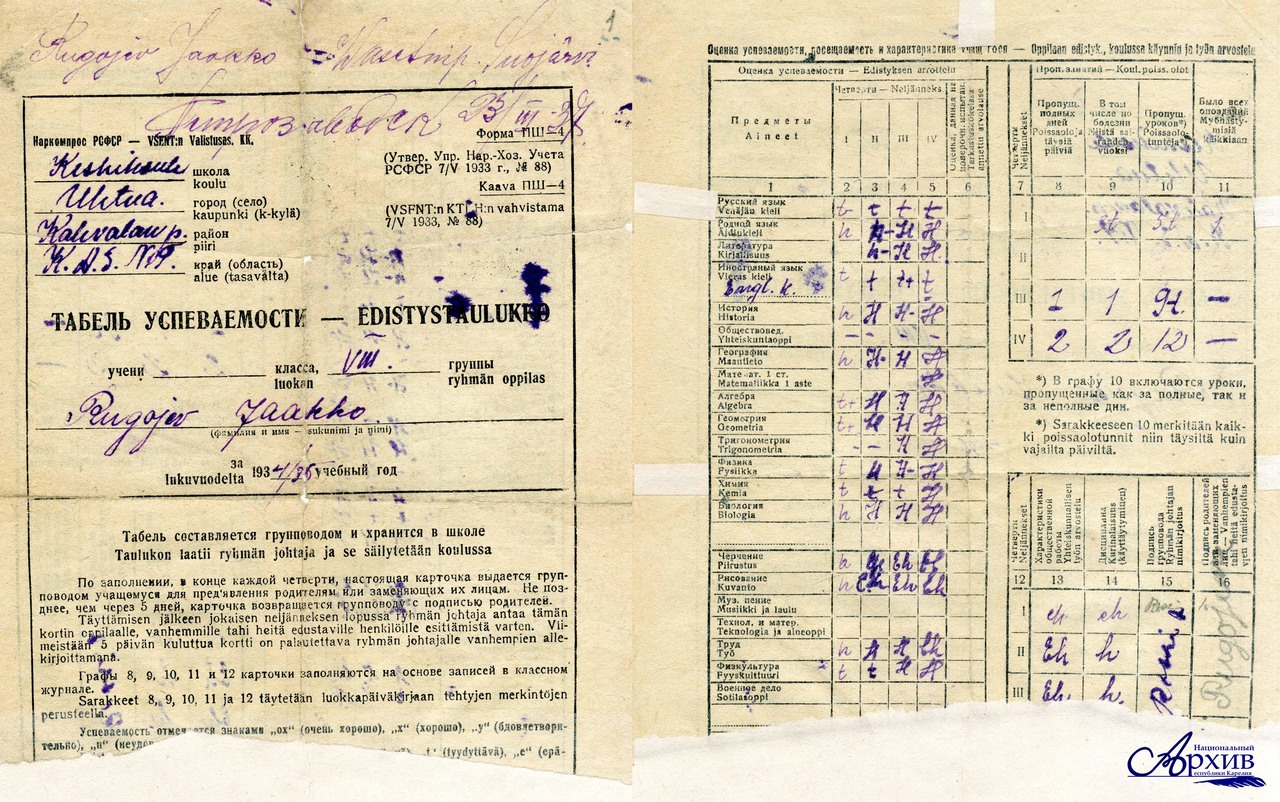 1
Rugojev Jaakko – Suojärvi
Петрозаводск 23/III
Наркомпрос РСФСР – VSENT:n Valistusas. KK.
Форма ПШ—4
Keskikoulu школа
koulu
(Утвер. Упр. Нар.-Хоз. Учета
РСФСР 7/V 1933 г., № 88)
Uhtua. город (село)
kaupunki (k-kylä)
Kaava ПШ—4
Kalevalan p. район
piiri
(VSFNT:n KTLH:n vahvistama
7/V 1933, № 88)
K. A. S. N. T. край (область)
alue (tasavalta)
ТАБЕЛЬ УСПЕВАЕМОСТИ — EDISTYSTAULUKKO
учени класса, VIII. группы
luokan ryhmän oppilas
Rugojev Jaakko
(фамилия и имя — sukunimi ja nimi)
за
lukuvuodelta 1934/35 учебный год
Табель составляется групповодом и хранится в школе
Taulukon laatii ryhmän johtaja ja se säilytetään koulussa
По заполнении, в конце каждой четверти, настоящая карточка выдается груп-
поводом учащемуся для пред'явления родителям или заменяющих их лицам. Не поз-
днее, чем через 5 дней, карточка возвращается групповоду с подписью родителей.
Täyttämisen jälkeen jokaisen neljänneksen lopussa ryhmän johtaja antaa tämän
kortin oppilaalle, vanhemmille tahi heitä edustaville henkilöille esittämistä varten. Vii-
meistään 5 päivän kuluttua kortti on palautettava ryhmän johtajalle vanhempien alle-
kirjoittamana.
Графы 8, 9, 10, 11 и 12 карточки заполняются на основе записей в классном
журнале.
Sarakkeet 8, 9, 10, 11 ja 12 täytetään luokkapäiväkirjaan tehtyjen merkintöjen
perusteella.
Успеваемость отмечается знаками „ох" (очень хорошо), „х" (хорошо), „у" (удовлетвори-
тельно), „н" (неудов
(tyydyttävä), „e" (erä-
Оценка успеваемости, посещаемость и характеристика учащегося — Oppilaan edistyk., koulussa käynnin ja työn arvostelu
Оценка успеваемости — Edistyksen arvottelu
Предметы
Aineet
Четверти — Neljänneks.
I II III IV
Оценка, данная на
поверочн. испытан.
1 2 3 4 5 6
Русский язык
Venäjän kieli t t t t
Родной язык
Äidinkieli h H H
Литература
Kirjallisuus h- H H
Иностраный язык
Vieras kieli t t t+ t
Engl. k.
История
Historia h H H- H
Обществовед.
Yhteiskuntaoppi — — —
География
Maantieto h H- H H
Математ. 1 ст.
Matematiikka 1 aste
Алгебра
Algebra t+ H H H
Геометрия
Geometria t+ H H H
Тригонометрия
Trigonometria — — H H
Физика
Fysiikka t H H- H
Химия
Kemia t t t H
Биология
Biologia h H H H
Черчение
Piirustus Eh Eh
Рисование
Kuvanto h Eh Eh Eh
Муз. пение
Musiikki ja laulu
Технол. и матер.
Teknologia ja aineoppi
Труд
Työ h H H Eh
Физкультура
Fyyskulttuuri t t H H
Военное дело
Sotilasoppi
Четверти
Neljännekset
Проп. занятий — Koul. poiss. olot
Пропущ.
полных
дней
Poissaoloja
täysiä
päiviä
В том
числе по
болезни
Niistä sai-
rauden
vuoksi
Пропущ.
уроков*)
Poissaolo-
tunteja*)
Было всех
опозданий
Myöhästy-
misiä
kaikkiaan
7 8 9 10 11
I
II
III 1 1 9t. —
IV 2 2 12 —
*) В графу 10 включаются уроки,
пропущенные как за полные, так и
за неполные дни.
*) Sarakkeeseen 10 merkitään kaik-
ki poissaolotunnit niin täysiltä kuin
vajailta päiviltä.
Четверти
Neljännekset
Характеристики
общественной
работы
Yhteiskunnallisen
työn arvostelu
Дисциплина
Kurinalaisuus
(käyttäytyminen)
Подпись
групповода
Ryhmän johtajan
nimikirjoitus
Подпись родителей
или заменяющих
их — Vanhempien
tahi heitä edusta-
vien nimikirjoitus
12 13 14 15 16
I eh eh
II Eh h
III Eh. h.
Rugojev
Национальный
Архив
Республики Карелия